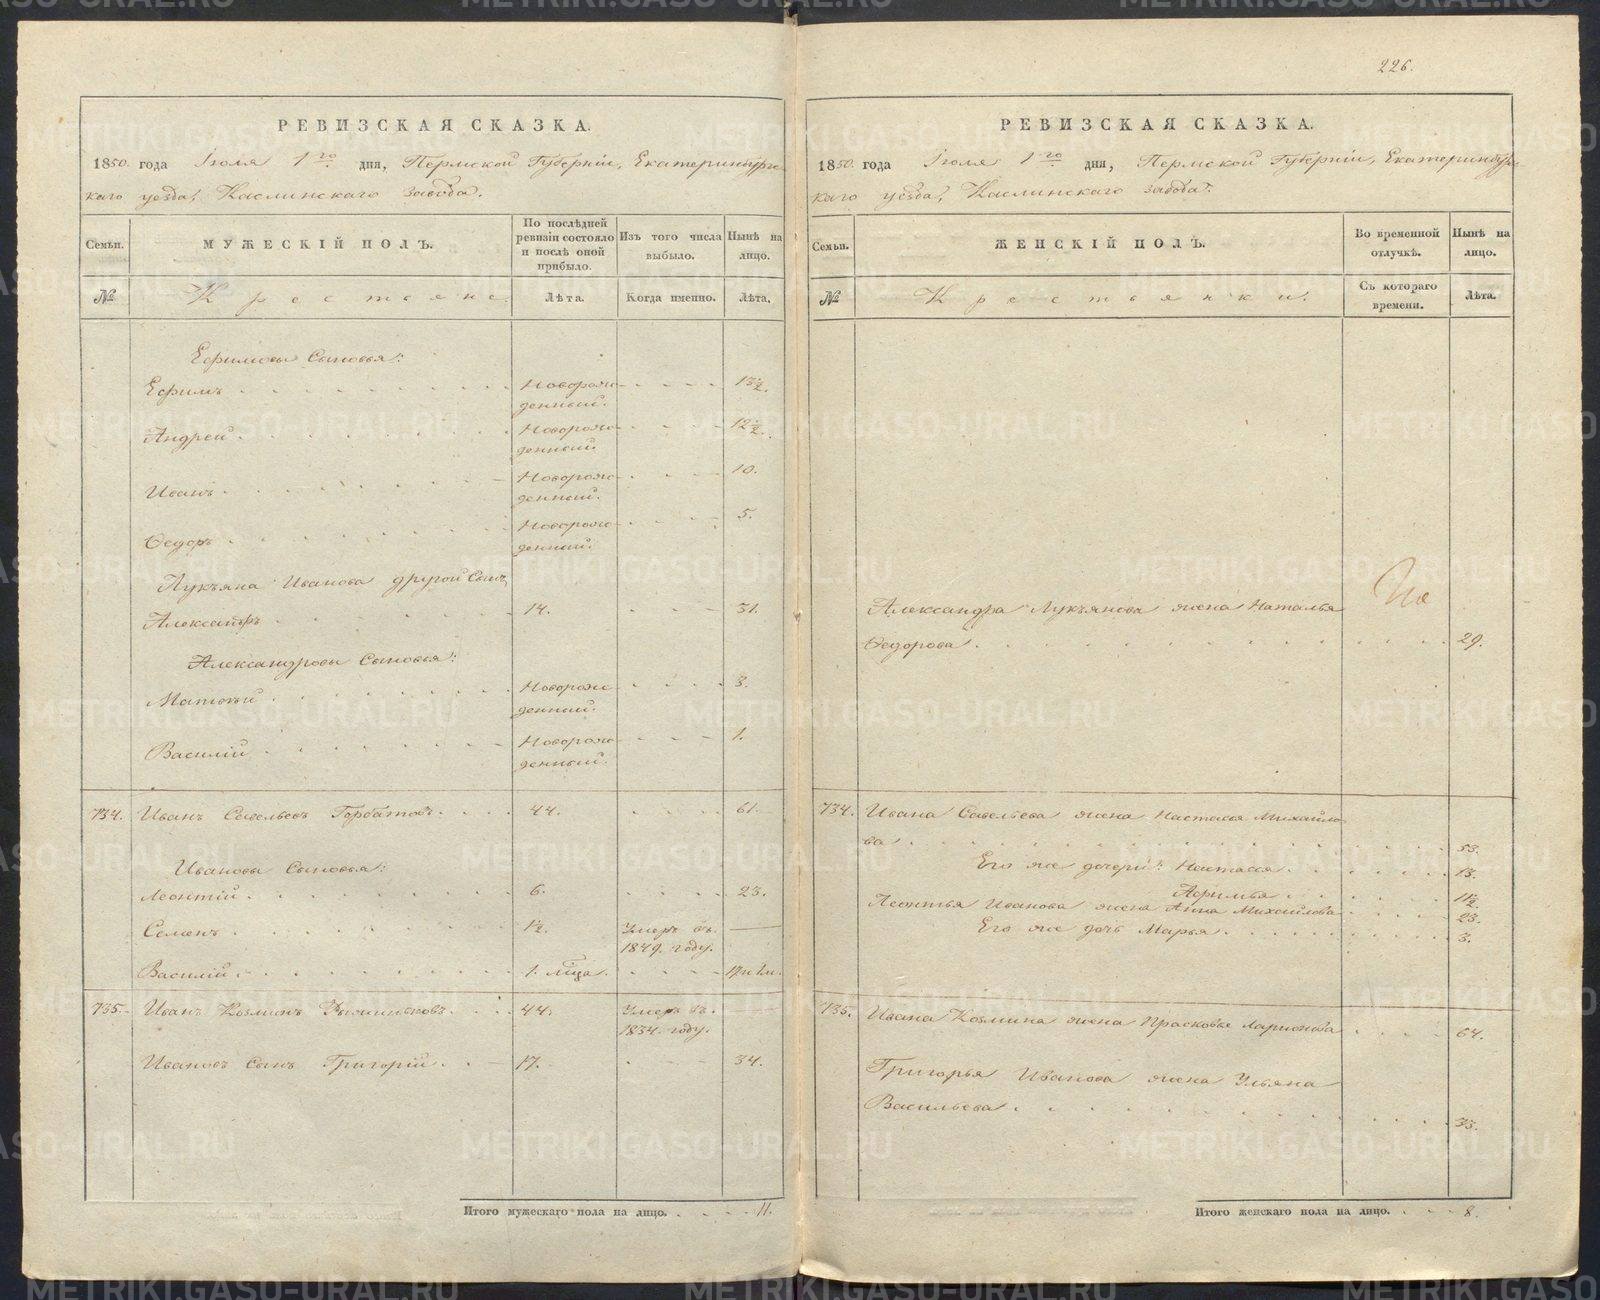 226.
РЕВИЗСКАЯ СКАЗКА.
1850. года Іюля 1го дня, Пермской Губерніи, Екатеринбургс-
каго уезда, Каслинскаго завода.
Семьи.
МУЖЕСКІЙ ПОЛЪ.
По послѣдней ревизіи состояло и послѣ оной прибыло.
Изъ того числа выбыло.
Нынѣ на лицо.
№
Крестьяне.
Лѣта.
Когда именно.
Лѣта.
Ефимовы Сыновья:
Ефимъ Новорож- 13½.
денный.
Андрей Новорож- 12½.
денный.
Иванъ Новорож- 10.
денный.
Ѳедоръ Новорож- 5.
денный.
Лукъяна Иванова другой Сынъ
Александръ 14. 31.
Александровы Сыновья:
Матвѣй Новорож- 3.
денный.
Василій Новорож- 1.
денный.
734. Иванъ Савельевъ Горбатовъ. 44. 61.
Ивановы Сыновья:
Леонтій 6. 23.
Семенъ ½. Умеръ въ
1849. году.
Василій 1. мѣца.
735. Иванъ Козминъ 44. Умеръ въ
1834. году.
Ивановъ Сынъ Григорій. 17. 34.
Итого мужескаго пола на лицо. 11.
РЕВИЗСКАЯ СКАЗКА.
1850. года Іюля 1го дня, Пермской Губерніи, Екатеринбургс-
каго уезда, Каслинскаго завода.
Семьи.
ЖЕНСКІЙ ПОЛЪ.
Во временной отлучкѣ.
Нынѣ на лицо.
№
Крестьянки.
Съ котораго времени.
Лѣта.
Александра Лукъянова жена Наталья
Ѳедорова 29.
734. Ивана Савельева жена Настасья Михайло-
ва 53.
Его же дочери: Настасья 13.
Афимья 11½.
Леонтья Иванова жена Анна Михайлова 23.
Его же дочь Марья 3.
735. Ивана Козмина жена Прасковья Ларионова 64.
Григорья Иванова жена Ульяна
Васильева 33.
Итого женскаго пола на лицо. 8.
METRIKI.GASO-URAL.RU